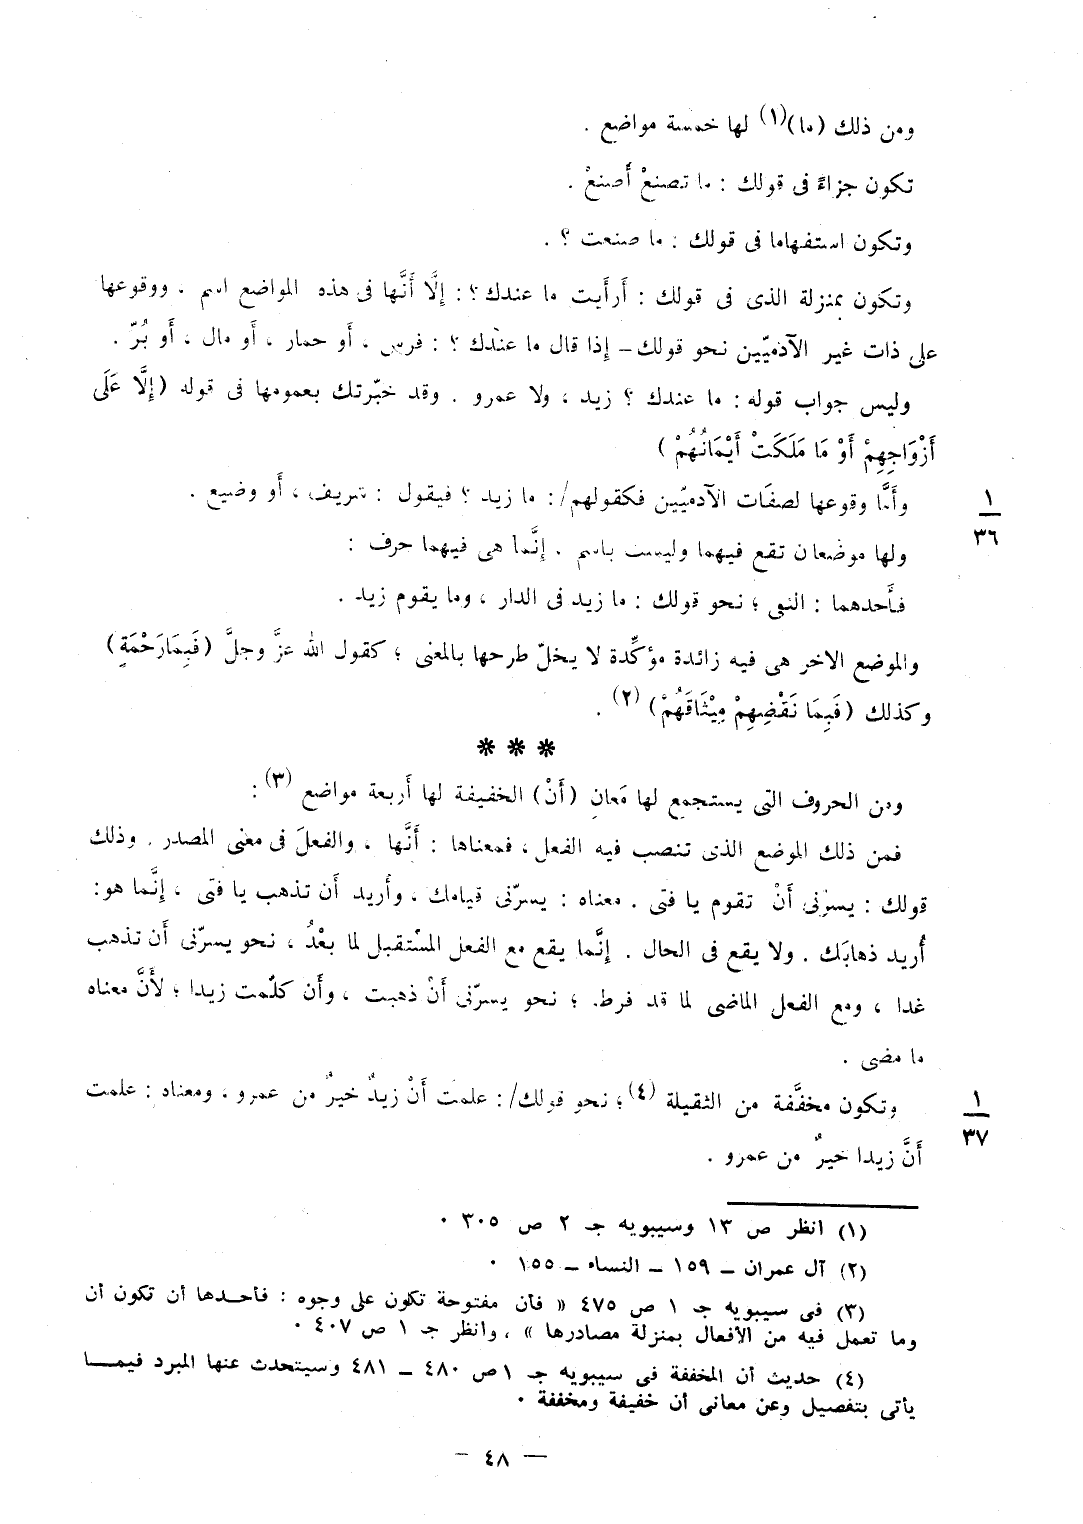 ومن ذلك (ما)(١) لها خمسة مواضع .
تكون جزاءً فى قولك : ما تصنعْ أَصنعْ .
وتكون استفهاما فى قولك : ما صنعت ؟ .
وتكون بمنزلة الذى فى قولك : أَرأَيت ما عندك؟ : إِلَّا أَنَّها فى هذه المواضع اسم . ووقوعها
على ذات غير الآدميّين نحو قولك – إذا قال ما عندك ؟ : فرس ، أَو حمار ، أَو مال ، أَو بُرّ .
وليس جواب قوله : ما عندك ؟ زيد ، ولا عمرو . وقد خبّرتك بعمومها فى قوله (إِلَّا عَلَى
أَزْوَاجِهِمْ أَوْ مَا مَلَكَتْ أَيْمَانُهُمْ )
وأَمَّا وقوعها لصفَات الآدميّين فكقولهم/: ما زيد ؟ فيقول : شريف ، أَو وضيع .
١
٣٦
ولها موضعان تقع فيهما وليست باسم . إِنَّما هى فيهما حرف :
فأَحدهما : النفى ؛ نحو قولك : ما زيد فى الدار ، وما يقوم زيد .
والموضع الاخر هى فيه زائدة مؤكِّدة لا يخلّ طرحها بالمعنى ؛ كقول الله عزَّ وجلَّ (فَبِمَارَحْمَةٍ)
وكذلك (فَبِمَا نَقْضِهِمْ مِيْثَاقَهُمْ) (٢) .
* * *
ومن الحروف التى يستجمع لها مَعانٍ (أَنْ) الخفيفة لها أَربعة مواضع (٣) :
فمن ذلك الموضع الذى تنصب فيه الفعل ، فمعناها : أَنَّها ، والفعلَ فى معنى المصدر . وذلك
قولك : يسرّنى أَنْ تقوم يا فتى . معناه : يسرّنى قيامك ، وأُريد أَن تذهب يا فتى ، إِنَّما هو:
أُريد ذهابَك . ولا يقع فى الحال . إِنَّما يقع مع الفعل المسْتقبل لما بعْدُ ، نحو يسرّنى أَن تذهب
غدا ، ومع الفعل الماضى لما قد فرط. ؛ نحو يسرّنى أَنْ ذهبت ، وأَن كلّمت زيدا ؛ لأَنَّ معناه
ما مضى .
وتكون مخفَّفة من الثقيلة (٤)؛ نحو قولك/: علمت أَنْ زيدٌ خيرٌ من عمرو ، ومعناه : علمت
١
٣٧
أَنَّ زيدا خيرٌ من عمرو .
(١) انظر ص ١٣ وسيبويه جـ ٢ ص ٣٠٥ ٠
(٢) آل عمران – ١٥٩ – النساء – ١٥٥ ٠
(٣) فى سيبويه جـ ١ ص ٤٧٥ « فأن مفتوحة تكون على وجوه : فأحدها أن تكون أن
وما تعمل فيه من الأفعال بمنزلة مصادرها » ، وانظر جـ ١ ص ٤٠٧ ٠
(٤) حديث أن المخففة فى سيبويه جـ ١ص ٤٨٠ – ٤٨١ وسيتحدث عنها المبرد فيمـا
يأتى بتفصيل وعن معانى أن خفيفة ومخففة ٠
– ٤٨ –